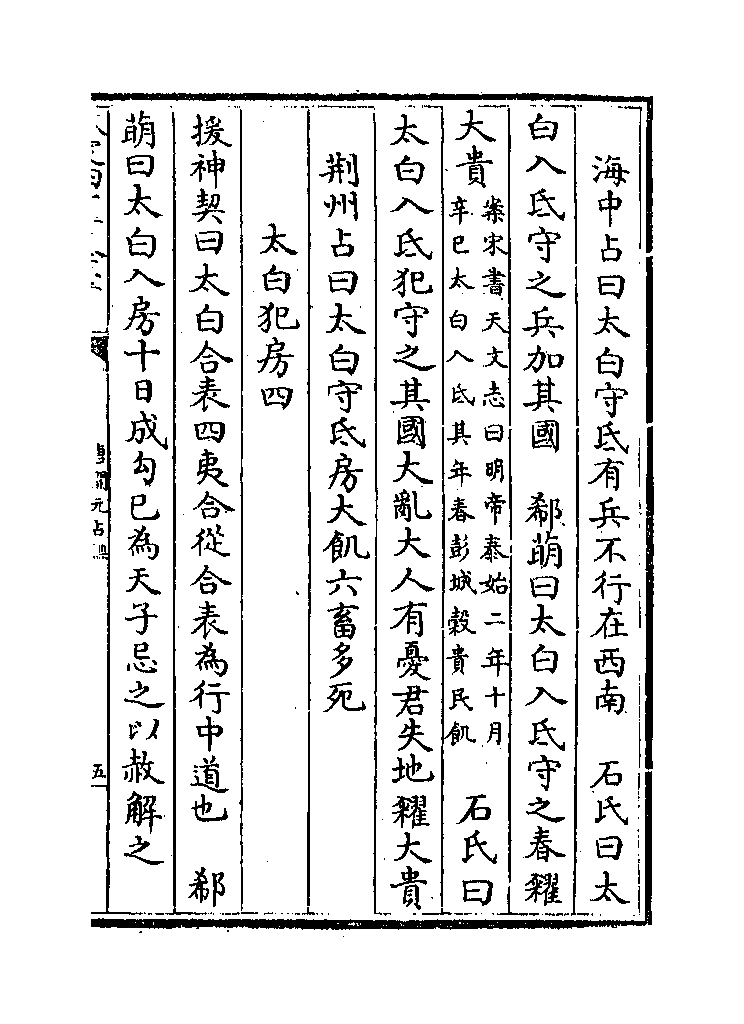 海中占曰太白守氐有兵不行在西南　石氏曰太
白入氐守之兵加其國　郗萌曰太白入氐守之春糴
大貴案宋書天文志曰明帝泰始二年十月
辛巳太白入氐其年春彭城穀貴民飢　石氏曰
太白入氐犯守之其國大亂大人有憂君失地糴大貴
荆州占曰太白守氐房大飢六畜多死
太白犯房四
援神契曰太白合表四夷合從合表為行中道也　郗
萌曰太白入房十日成勾巳為天子忌之以赦解之
元占經
五